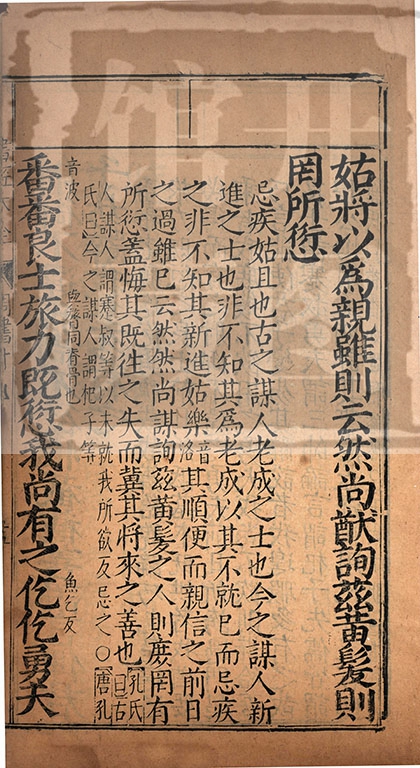 姑將以爲親雖則云然尚猷詢兹黄髮則
罔所愆
忌疾姑且也古之謀人老成之士也今之謀人新
進之士也非不知其爲老成以其不就已而忌疾
之非不知其新進姑樂音洛其順便而親信之前日
之過雖已云然然尚謀詢兹黄髮之人則庶罔有
所愆蓋悔其既往之失而冀其將來之善也孔氏曰古
人謀人謂蹇叔等以未就我所欲反忌之○唐孔
氏曰今之謀人謂杞子等
音波
番番良士旅力既愆我尚有之仡仡勇夫
魚乞反